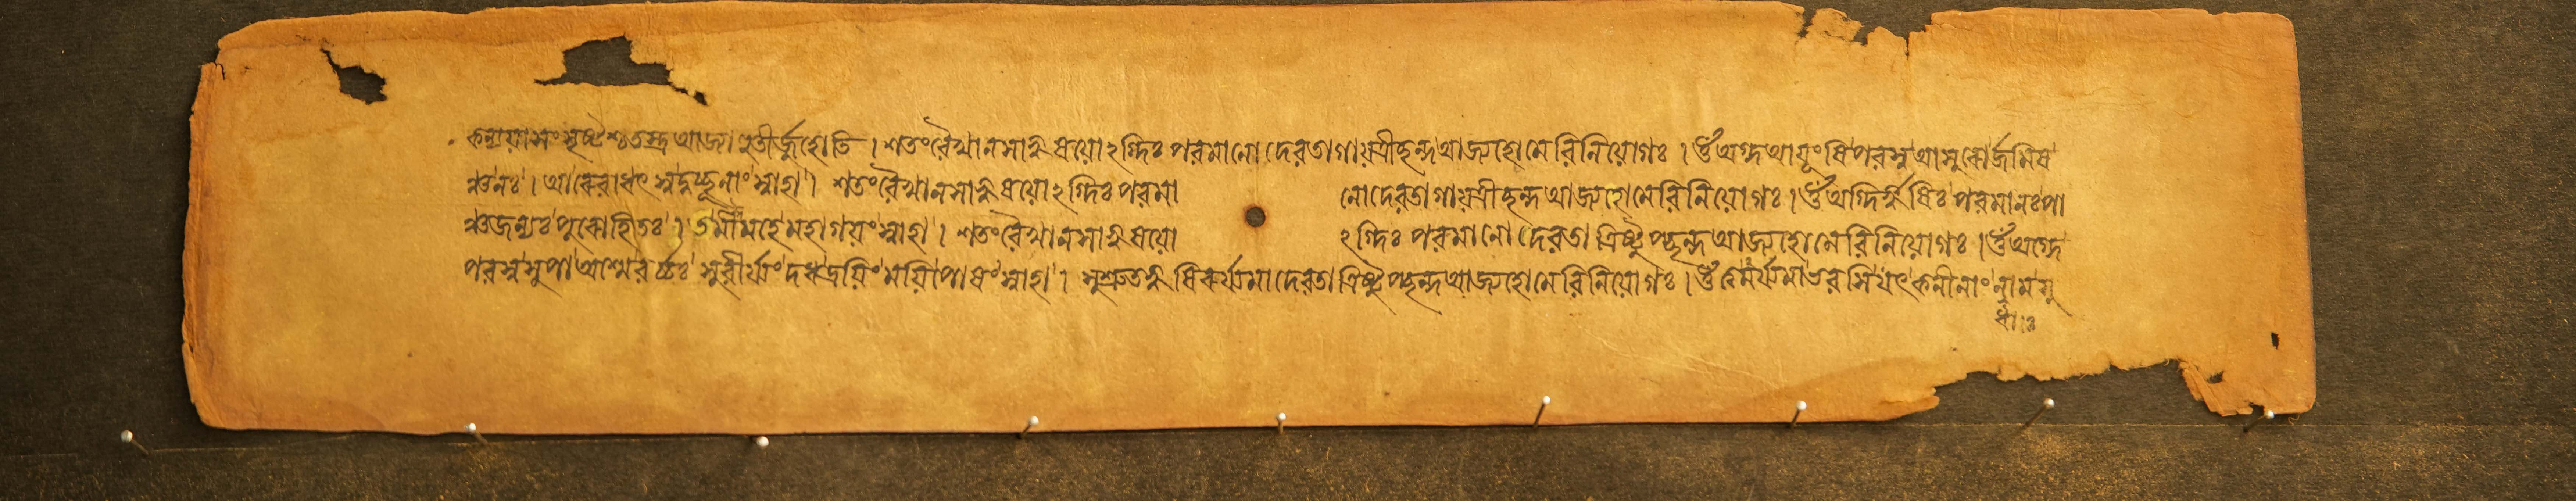 কন্যয়াসংসৃষ্টশ্চতস্রআজ্যাহুতীর্জুহোতি । শতংবৈখানসাঋষয়োঽগ্নিঃ পবমানো দেবতাগায়ত্রীছন্দআজ্যহোমেবিনিয়োগঃ । ওঁঅগ্নআয়ূংষিপবসআসুবোর্জমিষ
ঞ্চনঃ । আরেবাধস্বদুচ্ছুনাংস্বাহা । শতংবৈখানসাঋষয়োঽগ্নিঃ পবমা নোদেবতাগায়ত্রীছন্দআজ্যহোমেবিনিয়োগঃ । ওঁঅগ্নির্ঋষিঃ পবমানঃপা
ঞ্চজন্যঃ পুরোহিতঃ । তমীমহেমহাগয়ংস্বাহা । শতংবৈখানসাঋষয়ো ঽগ্নিঃ পবমানো দেবতা ত্রিষ্টুপ্ছন্দআজ্যহোমেবিনিয়োগঃ । ওঁঅগ্নে
পবস্বসুপাঅস্মেবর্চ্চঃ সুবীর্য্যংদধদ্রয়িংময়িপোষংস্বাহা । সুশ্রুতঋষিরর্য্যমাদেবতাত্রিষ্টুপ্ছন্দআজ্যহোমেবিনিয়োগঃ । ওঁত্বমর্য্যমাভবসিযৎকনীনাংনামস্ব